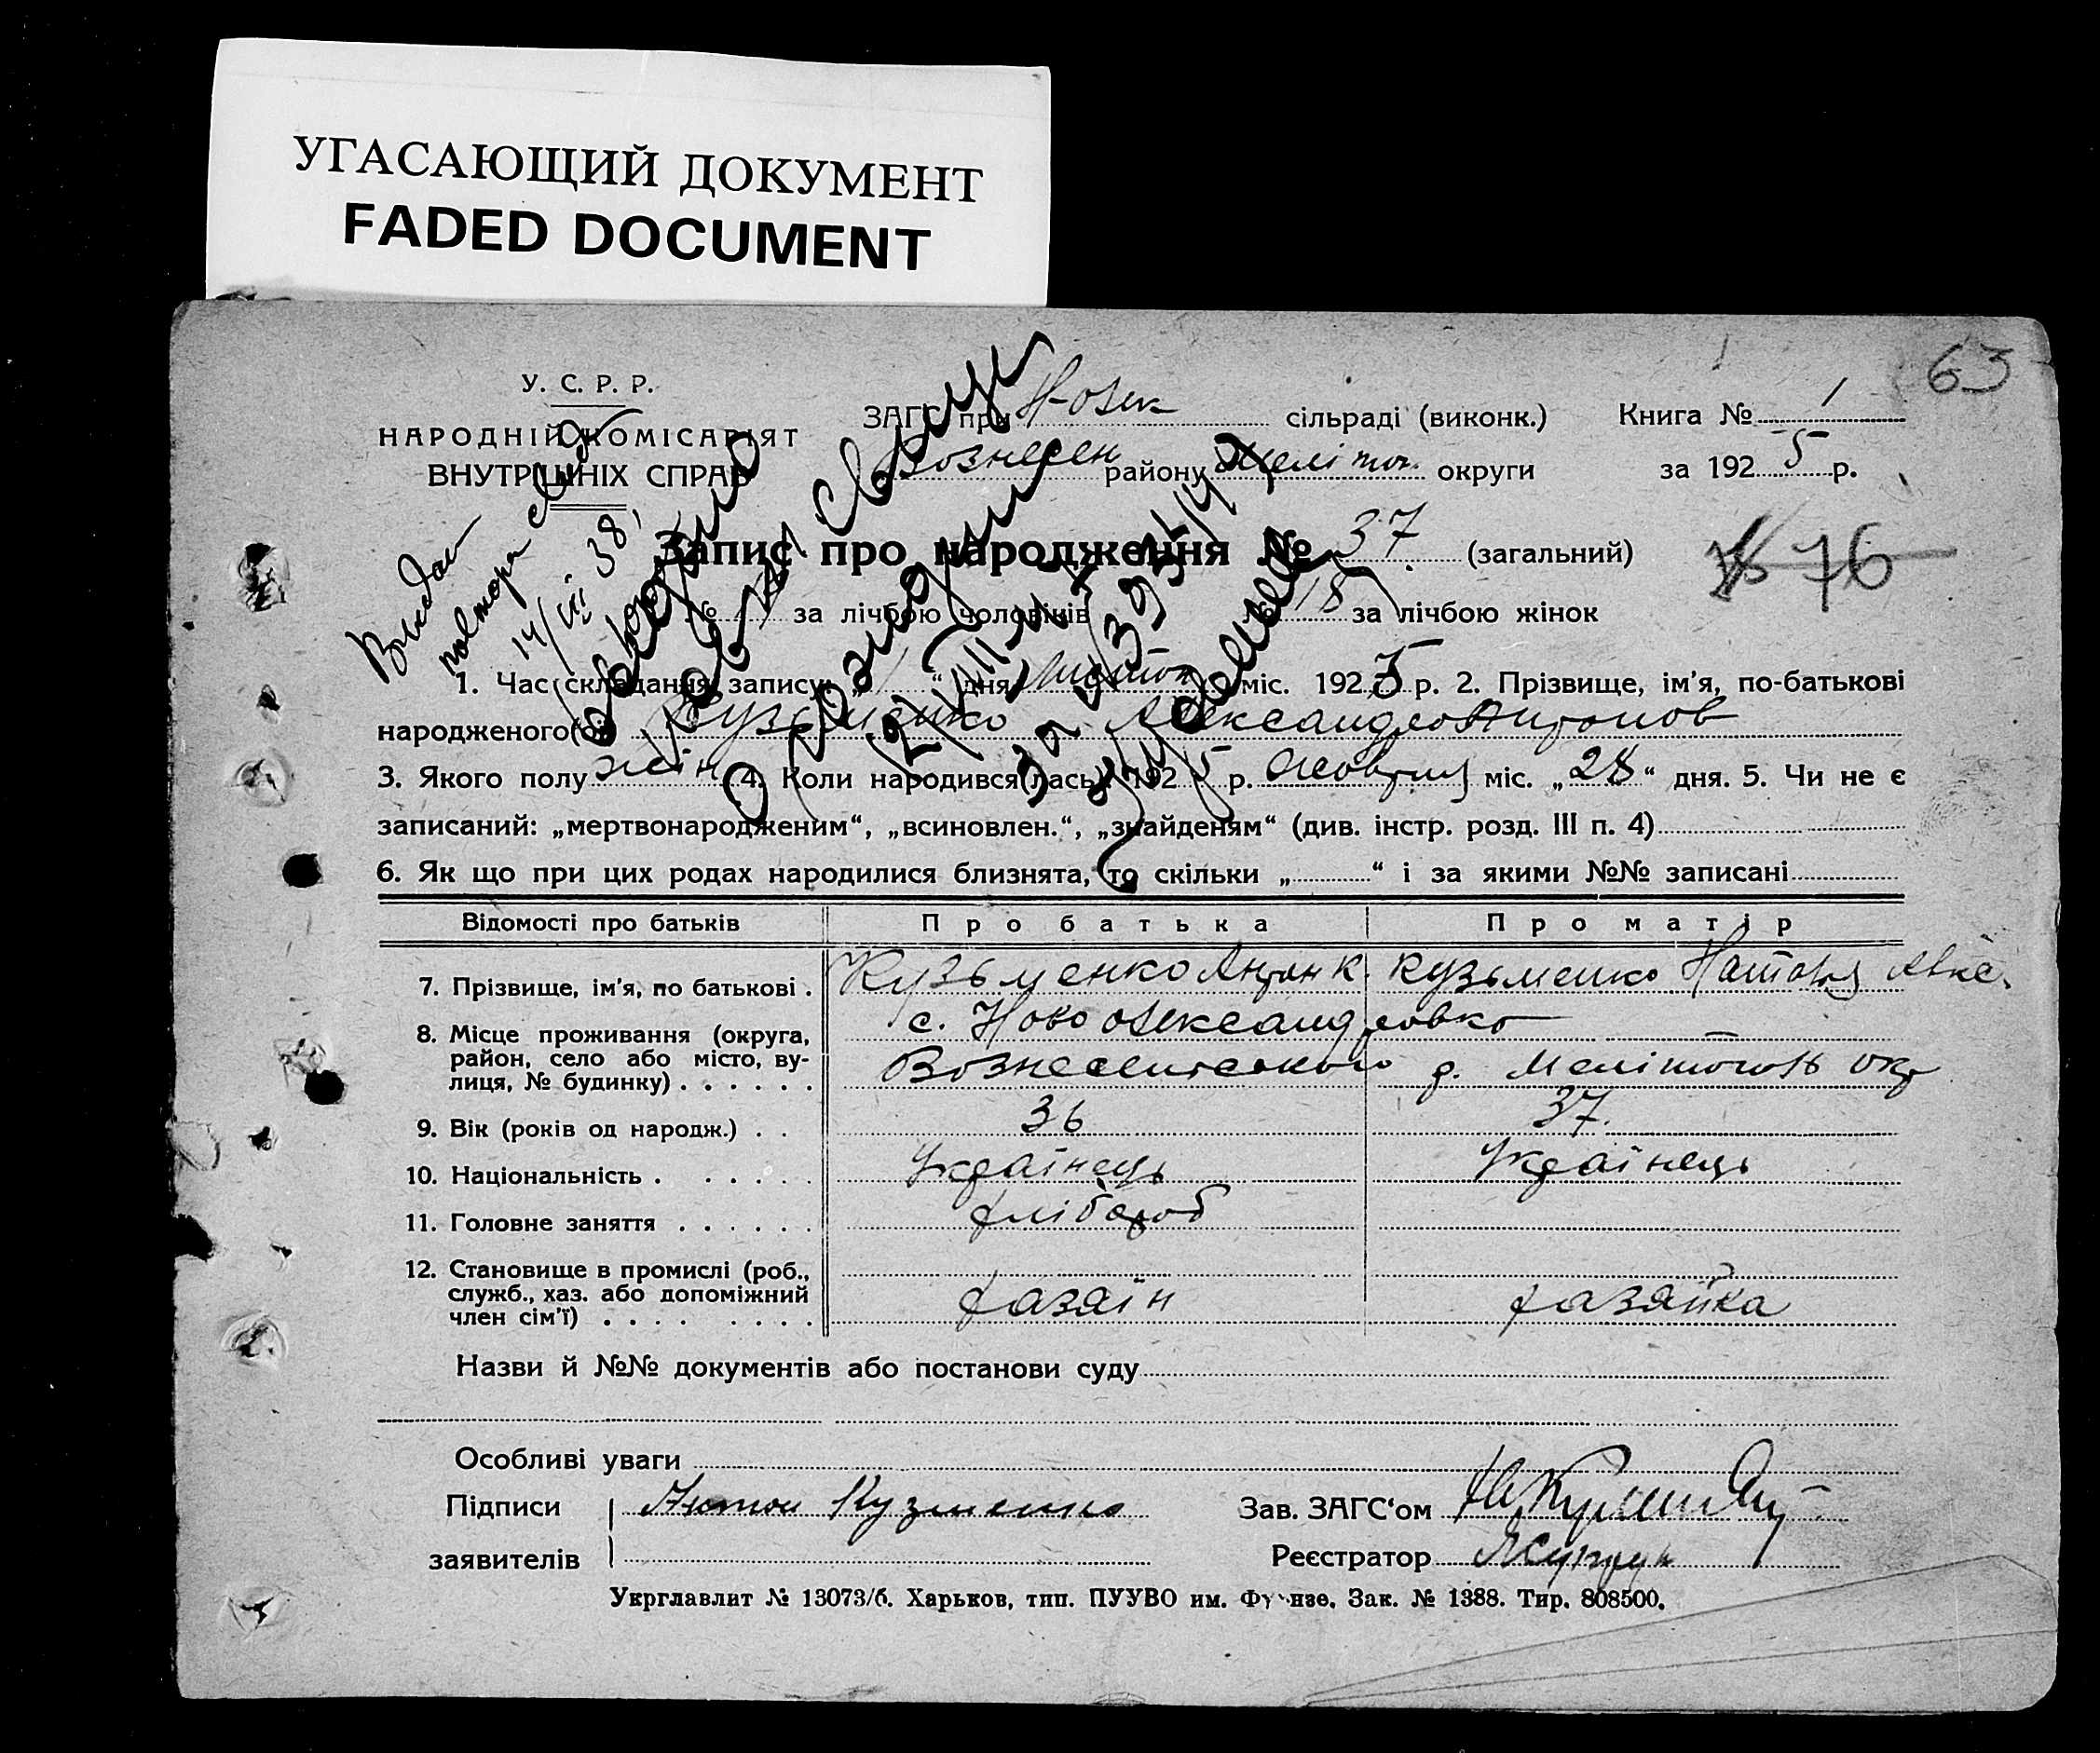 УГАСАЮЩИЙ ДОКУМЕНТ
FADED DOCUMENT
63
У. С. Р. Р.
НАРОДНІЙ КОМІСАРІЯТ
ВНУТРІШНІХ СПРАВ
ЗАГС при Н-Олек сільраді (виконк.) Книга № 1
Вознесен району Мелітоп. округи за 192 5 р.
Запис про народження № 37 (загальний)
76
№ за лічбою чоловіків № 18 за лічбою жінок
Выдан
14/VII 38
1. Час складання запису „1“ дня міс. 192 5 р. 2. Прізвище, ім'я, по-батькові
народженого(ої) Кузьменко Александра Антонов
3. Якого полу жін. 4. Коли народився(лась) 192 5 р. Жовтня міс. „28“ дня. 5. Чи не є
записаний: „мертвонародженим“, „всиновлен.“, „знайденям“ (див. інстр. розд. III п. 4)
6. Як що при цих родах народилися близнята, то скільки „ “ і за якими №№ записані
Відомості про батьків Про батька Про матір
7. Прізвище, ім'я, по батькові . Кузьменко Антон К. Кузьменко Наталья
8. Місце проживання (округа, с. Новоолександровка
район, село або місто, ву-
лиця, № будинку) . . . . . . Вознесенського р. Мелітополь окр
9. Вік (років од народж.) . . 36 37.
10. Національність . . . . . . Українець Українець
11. Головне заняття . . . . . . хлібороб
12. Становище в промислі (роб.,
служб., хаз. або допоміжний
член сім'ї) . . . . . . . . хазяїн хазяйка
Назви й №№ документів або постанови суду
Особливі уваги
Підписи Антон Кузменко Зав. ЗАГС'ом
заявителів Реєстратор
Укрглавлит № 13073/б. Харьков, тип. ПУУВО им. Фрунзе. Зак. № 1388. Тир. 808500.